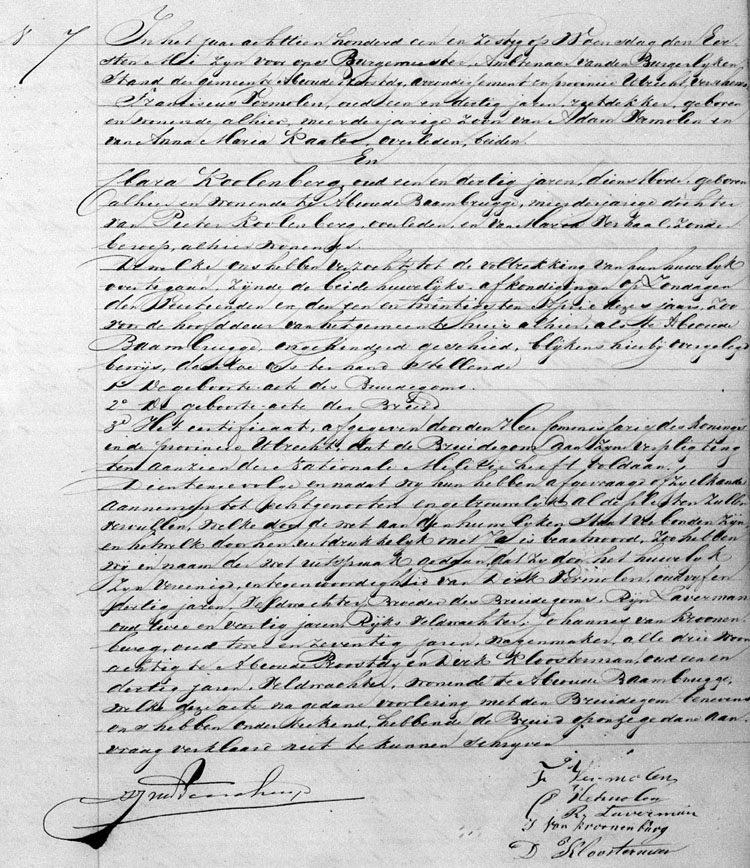 N 7
In het jaar achttien honderd een en zestig op Woensdag den Eer-
sten Mei zyn voor ons Burgemeester Ambtenaar van den Burgerlyken
Stand der gemeente Abcoude Proostdy, arrondissement en provincie Utrecht, verschenen
Franciscus Vermolen, oud een en dertig jaren, rietdekker, geboren
en wonende alhier, meerderjarige zoon van Adam Vermolen en
van Anna Maria Kaatee, overleden, beiden
En
Clara Koolenberg, oud een en dertig jaren, dienstbode, geboren
alhier en wonende te Abcoude Baambrugge, meerderjarige dochter
van Pieter Koolenberg, overleden, en van Verhaal, zonder
beroep, alhier wonende.
Dewelke ons hebben verzocht tot de voltrekking van hun huwelyk
over te gaan, zynde de beide huwelyks afkondigingen op Zondagen
den Veertienden en den een en twintigsten April dezes jaars, zoo
voor de hoofddeur van het gemeentehuis alhier, als te Abcoude
Baambrugge, ongehinderd geschied, blykens hierby overgelegd
bewys, dat toe ons ter hand stellende
1o De geboorte acte des Bruidegoms.
2o De geboorte acte der Bruid
3o Het certificaat, afgegeven door den Heer Commissaris des Konings
in de provincie Utrecht, dat de Bruidegom aan zyn verpligting
ten aanzien der Nationale Militie heeft voldaan.
Dientengevolge en nadat wy hun hebben afgevraagd of zy elkander
aannemen tot echtgenooten en getrouwelyk al de pligten zullen
vervullen, welke door de wet aan den huwelyken Staat verbonden zyn,
en hetwelk door hen uitdrukkelyk met Ja is beantwoord, zoo hebben
wy in naam der wet uitspraak gedaan, dat zy door het huwelyk
zyn vereenigd, in tegenwoordigheid van Dirk Vermolen, oud vyf en
dertig jaren, Veldwachter, Broeder des Bruidegoms, Ryn Laverman
oud twee en veertig jaren, Ryks Veldwachter, Johannes van Kroonen-
burg, oud twee en zeventig jaren, wagenmaker, alle drie woon-
achtig te Abcoude Proostdy en Dirk Kloosterman, oud een en
dertig jaren, Veldwachter, wonende te Abcoude Baambrugge,
welke deze acte na gedane voorlezing met den Bruidegom benevens
ons hebben onderteekend, hebbende de Bruid op onze gedane aan-
vraag verklaard niet te kunnen schryven
F Vermolen
D Vermolen
R. Laverman
J van Kroonenburg
D Kloosterman